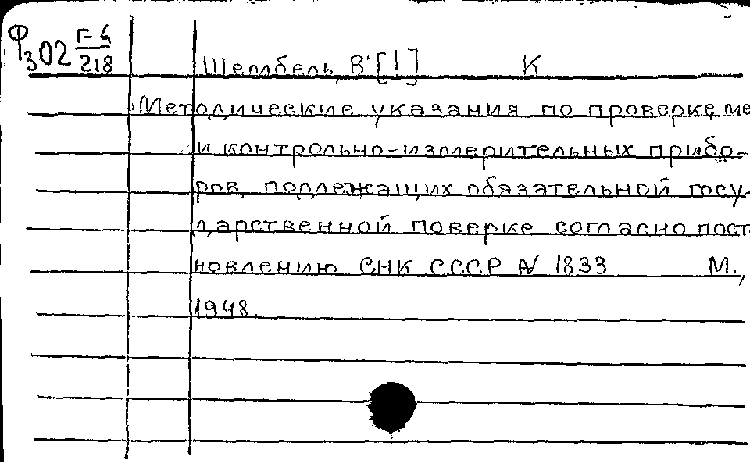 Ф302 Г-4/218
Шембель, В. [!] К
Методические указания по проверке ме
и контрольно-измерительных прибо-
ров, подлежащих обязательной госу-
дарственной поверке согласно пост
новлению СНК СССР № 1833 М.,
1948.